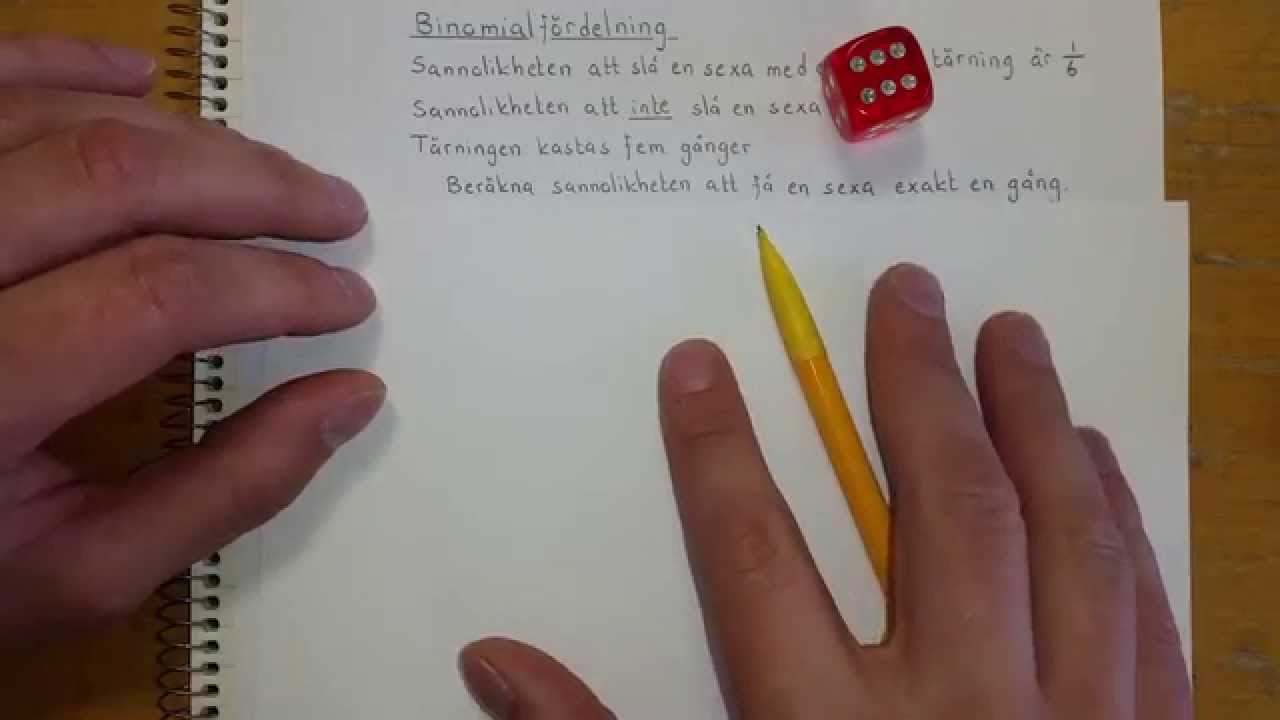 Binomialfördelning
Sannolikheten att slå en sexa med tärning är 1/6
Sannolikheten att inte slå en sexa
Tärningen kastas fem gånger
Beräkna sannolikheten att få en sexa exakt en gång.